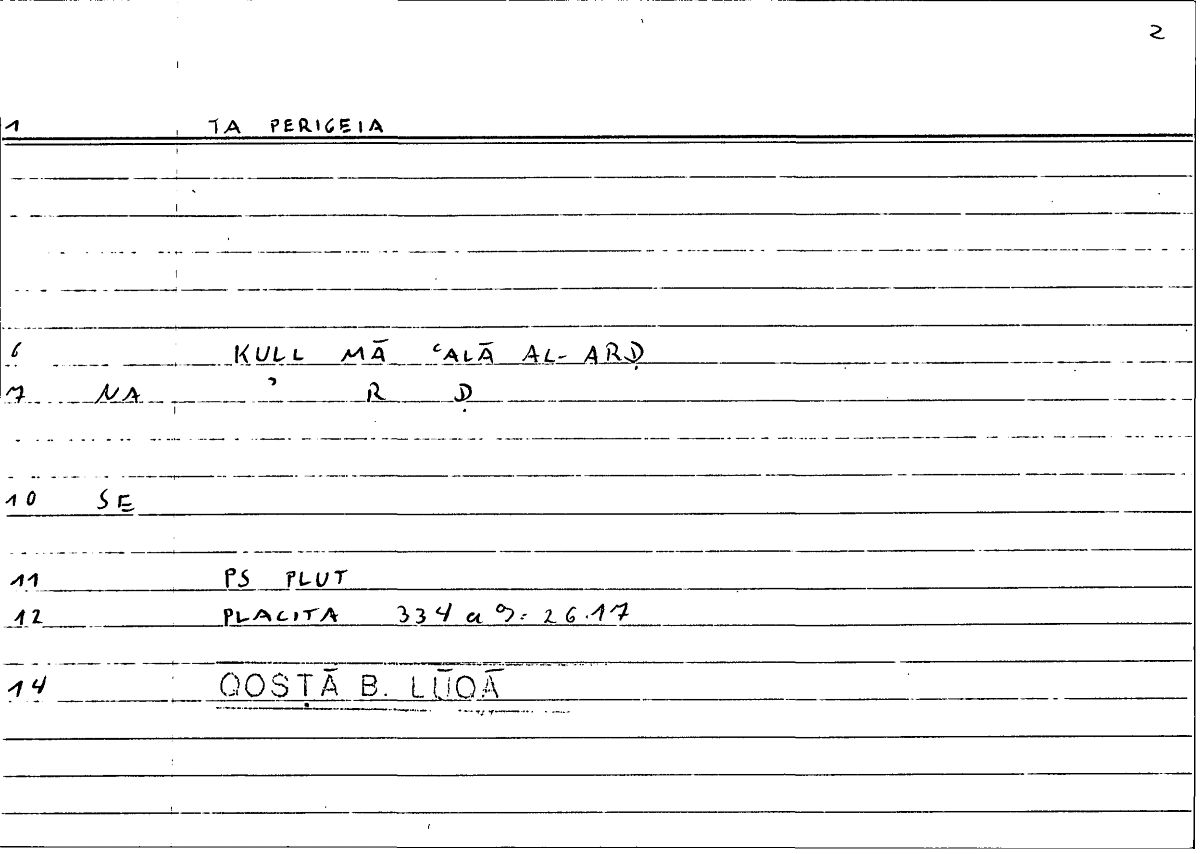 2
1 TA PERIGEIA
6 KULL MĀ ʿALĀ AL-ARḌ
7 NA ʾ R Ḍ
10 SE
11 PS PLUT
12 PLACITA 334 a 9: 26.17
14 QOSṬĀ B. LŪQĀ